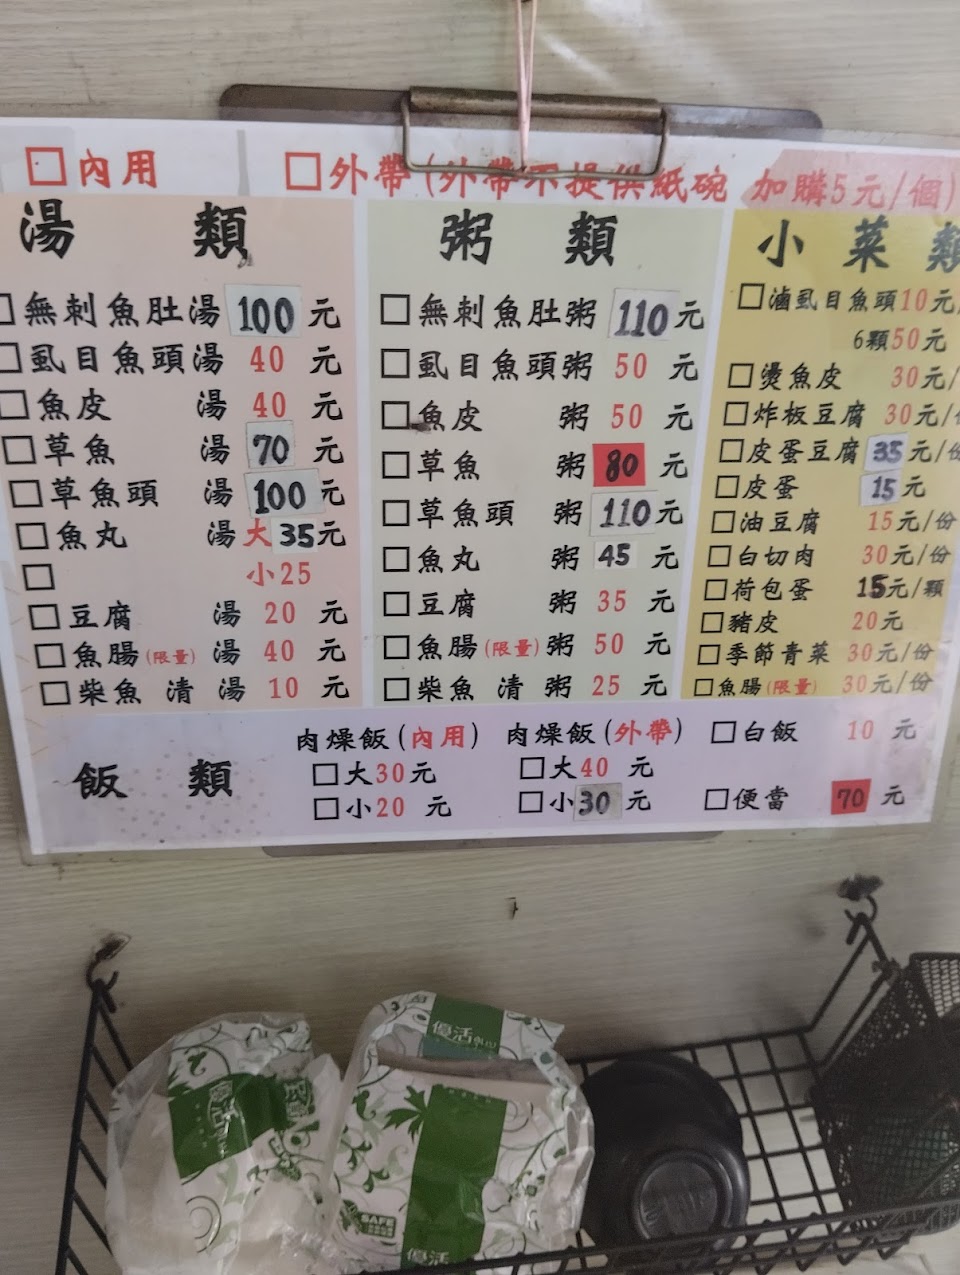 □內用 □外帶(外帶不提供紙碗 加購5元/個)
湯 類
□無刺魚肚湯 100 元
□虱目魚頭湯 40 元
□魚皮 湯 40 元
□草魚 湯 70 元
□草魚頭 湯 100 元
□魚丸 湯大 35元
□ 小25
□豆腐 湯 20 元
□魚腸(限量) 湯 40 元
□柴魚清湯 10 元
粥 類
□無刺魚肚粥 110元
□虱目魚頭粥 50 元
□魚皮 粥 50 元
□草魚 粥 80 元
□草魚頭 粥 110元
□魚丸 粥 45 元
□豆腐 粥 35 元
□魚腸(限量)粥 50 元
□柴魚清粥 25 元
小菜類
□滷虱目魚頭10元/
6顆50元
□燙魚皮 30元/
□炸板豆腐 30元/份
□皮蛋豆腐 35元/份
□皮蛋 15元
□油豆腐 15元/份
□白切肉 30元/份
□荷包蛋 15元/顆
□豬皮 20元
□季節青菜 30元/份
□魚腸(限量) 30元/份
飯 類
肉燥飯(內用)
□大30元
□小20 元
肉燥飯(外帶)
□大40 元
□小30 元
□白飯 10 元
□便當 70 元
優活
優活